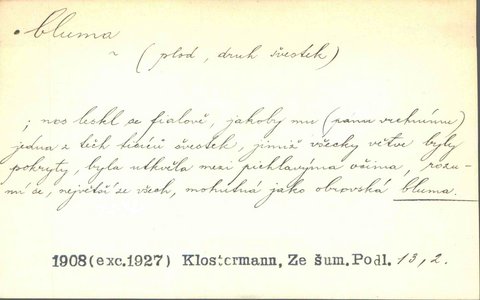 • bluma
~ (plod, druh švestek)
; nos leskl se fialově, jakoby mu (panu vrchnímu)
jedna z těch tisíců švestek, jimiž všecky větve byly
pokryty, byla utkvěla mezi pichlavýma očima, rozu-
mí se, největší ze všech, mohutná jako obrovská bluma.
1908(exc.1927) Klostermann, Ze šum.Podl. 13, 2.